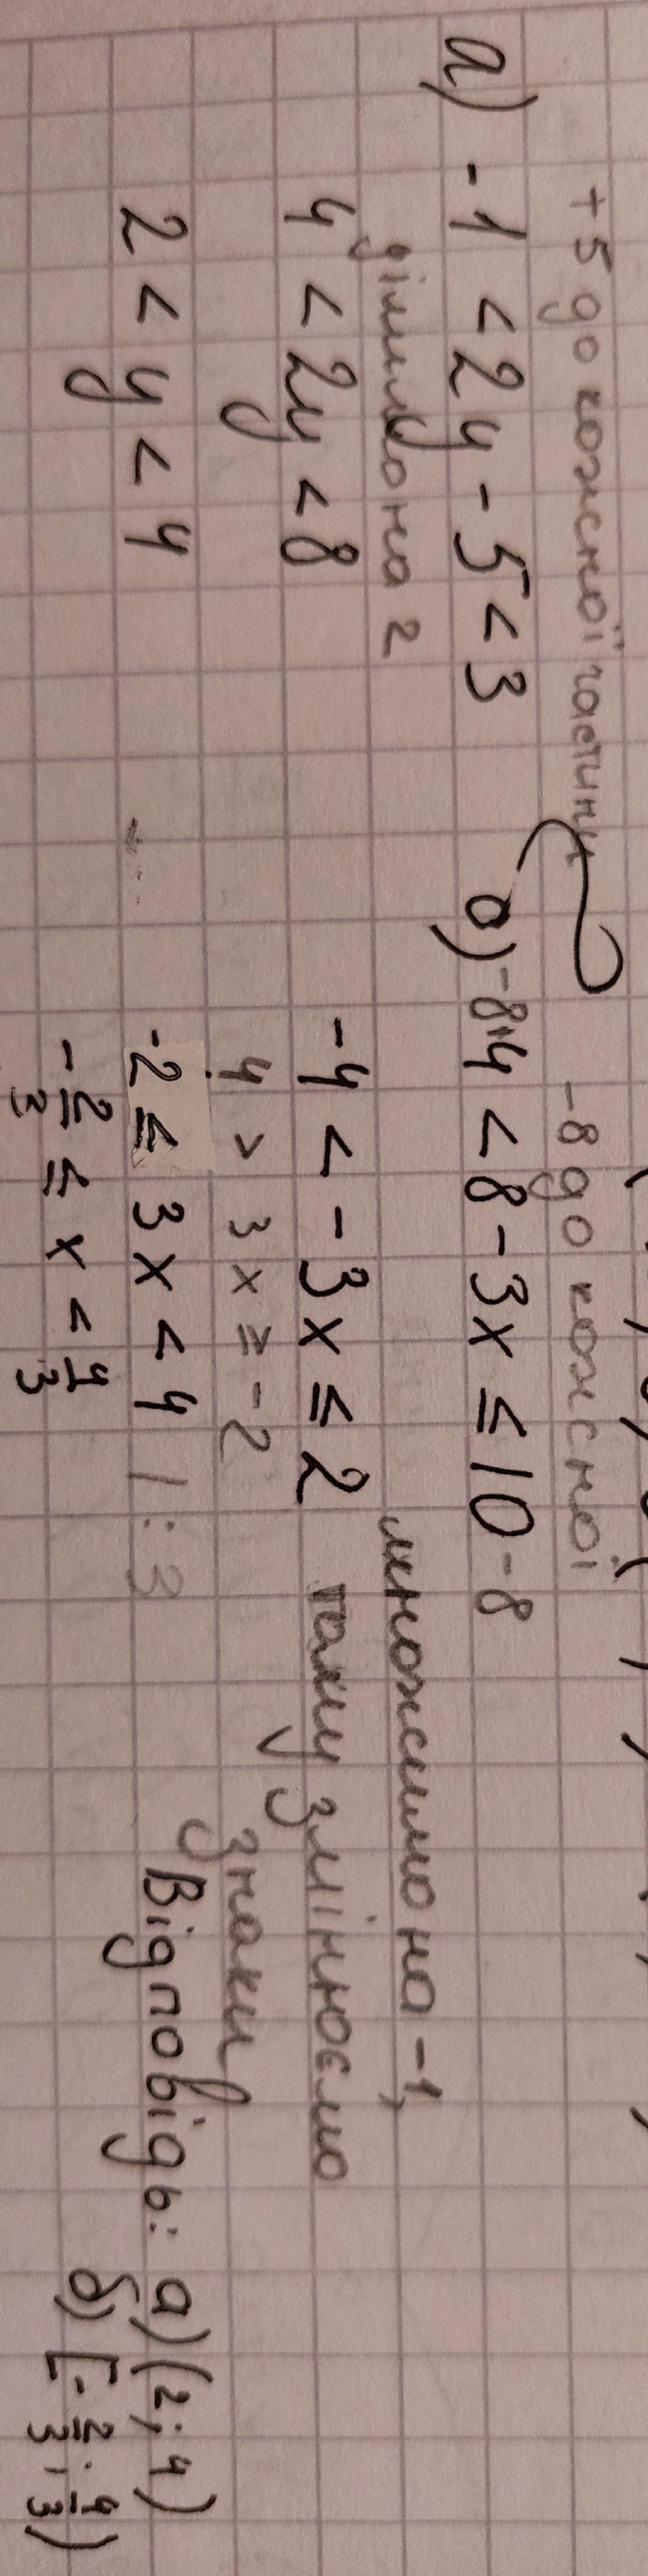 +5 до кожної частини
а) -1 < 2y - 5 < 3
ділимо на 2
4 < 2y < 8
2 < y < 4
-8 до кожної
б) -8+4 < 8 - 3x ≤ 10 -8
множимо на -1,
-4 < -3x ≤ 2 таму змінюємо
4 > 3x ≥ -2 знаки
-2 ≤ 3x < 4 | : 3
-2/3 ≤ x < 4/3
Відповідь: а) (2; 4)
б) [-2/3; 4/3)